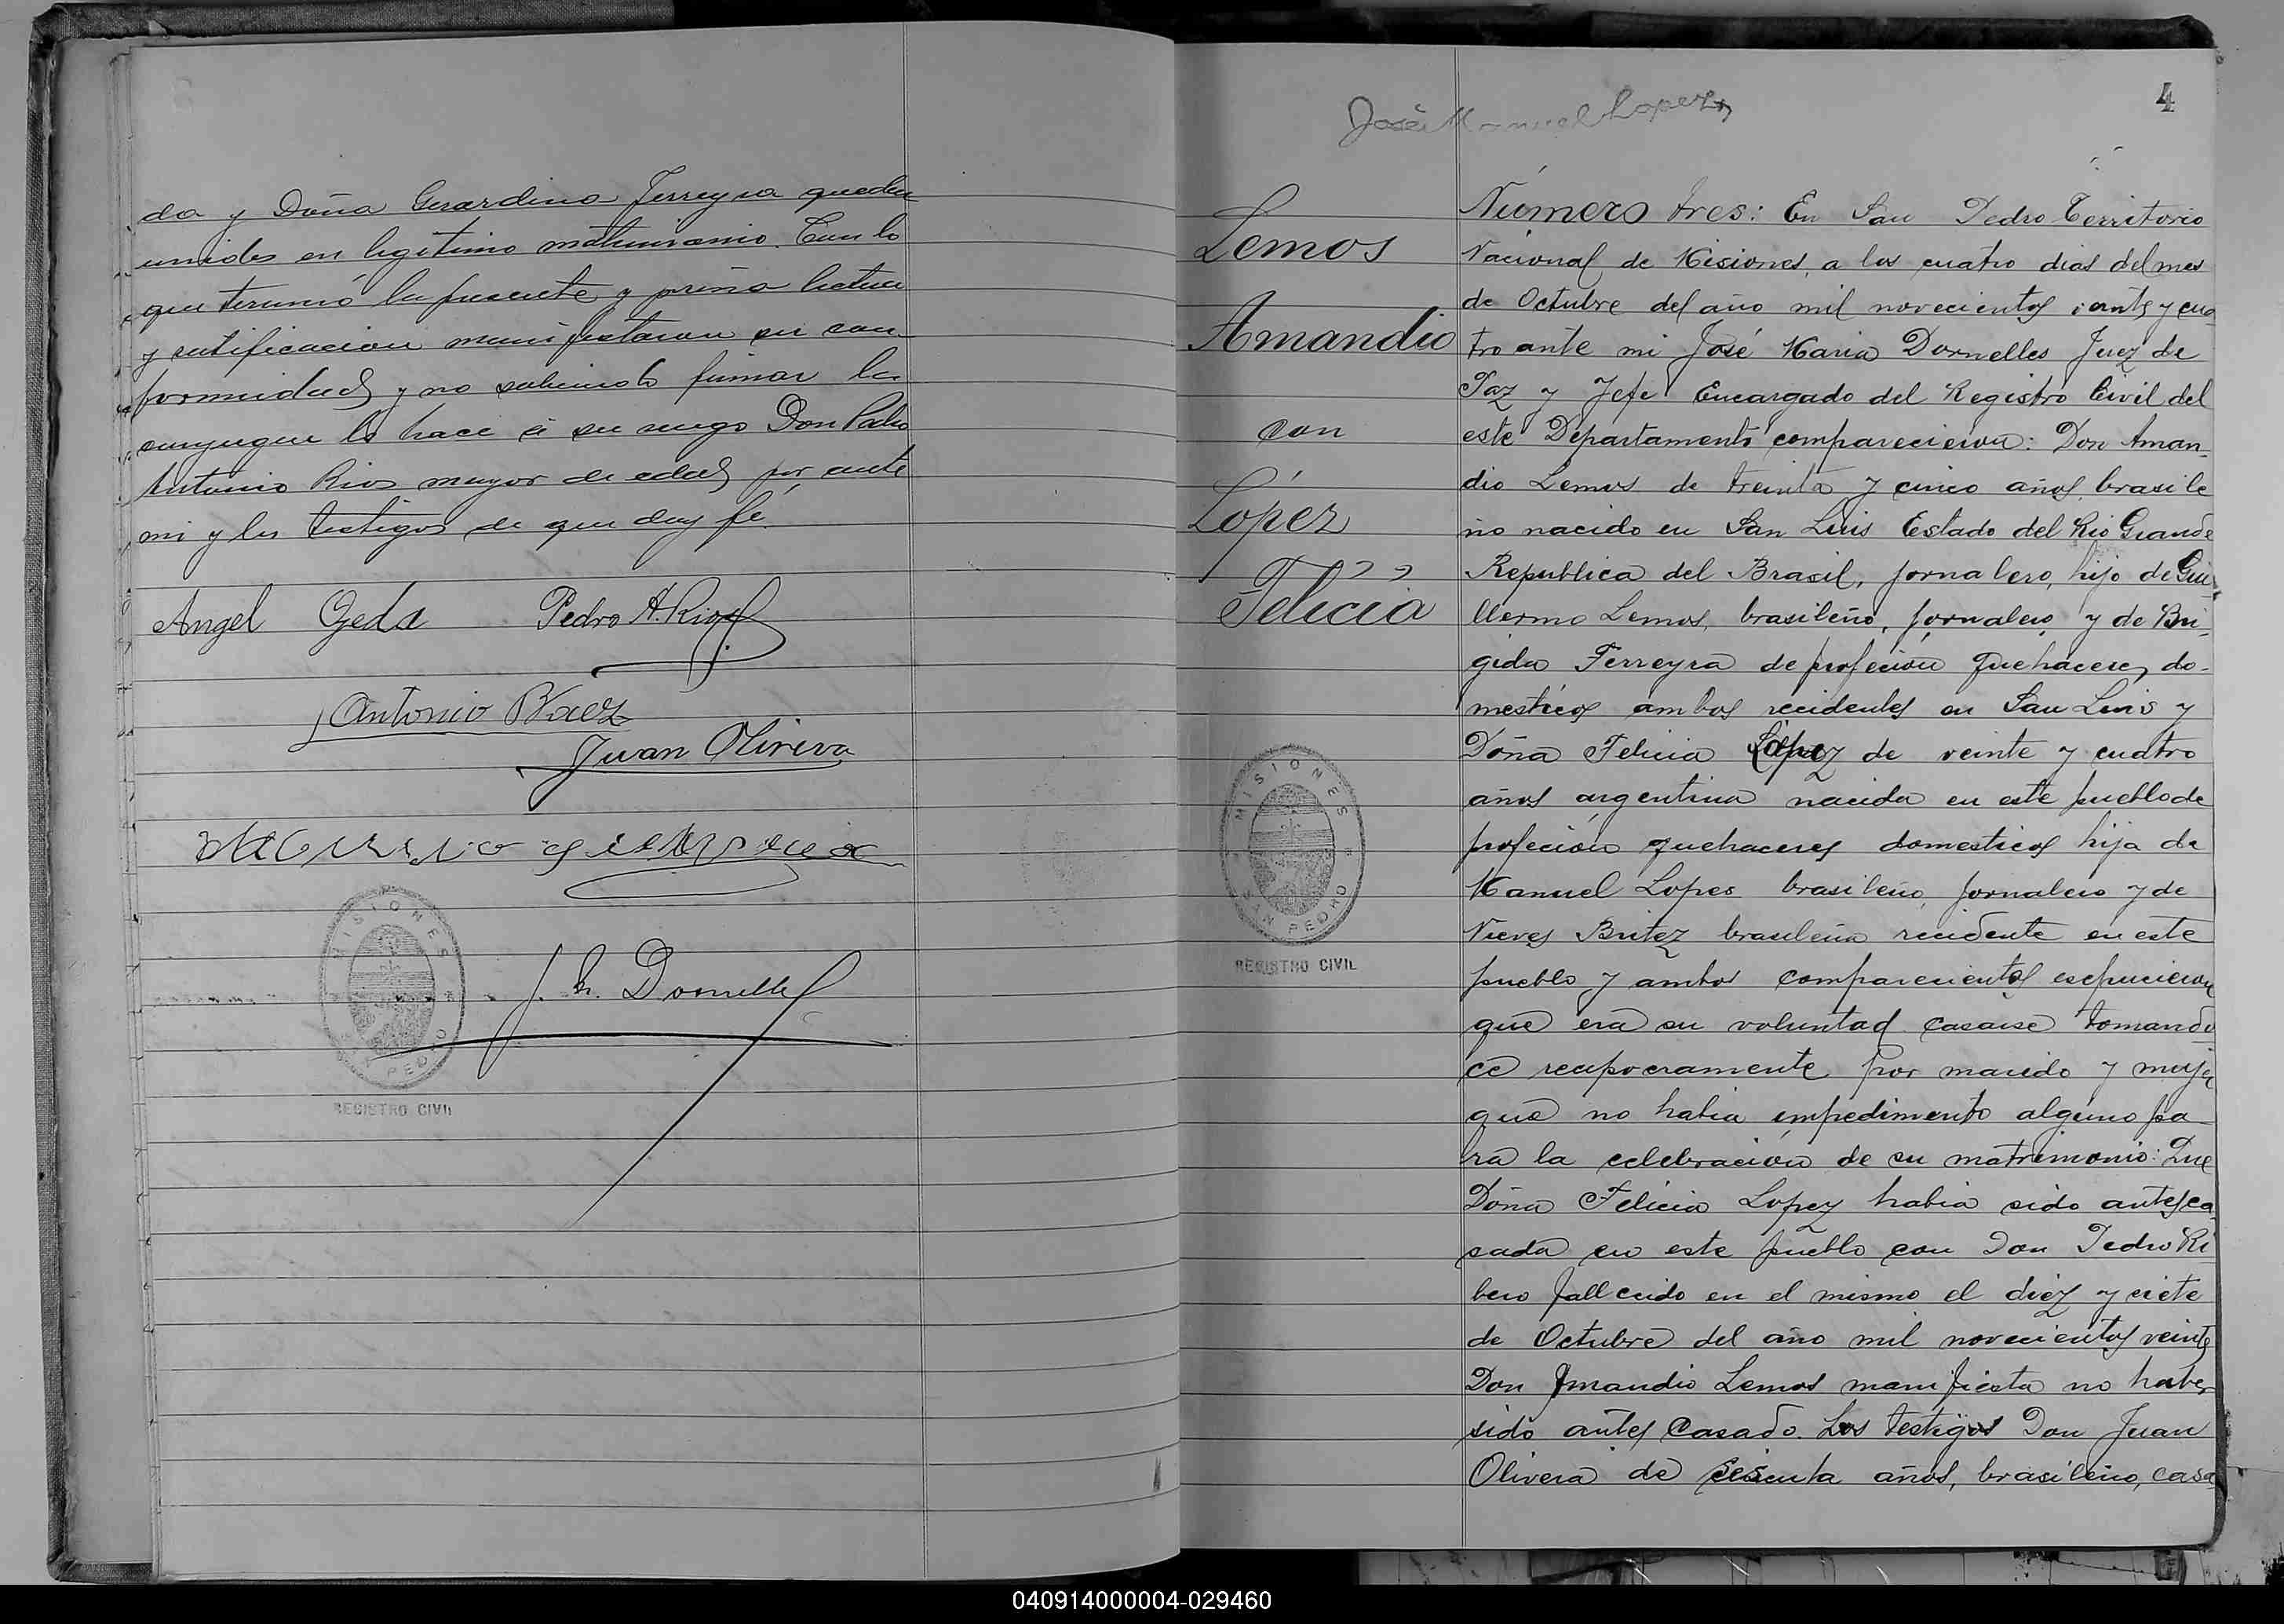 da y Doña Gerardina Ferreyra quedan
unidos en legitimo matrimonio. Con lo
que terminó la presente y previa lectura
y ratificacion manifestaron su con
formidad y no sabiendo firmar la
conyugue lo hace á su ruego Don Pedro
Antonio Rios mayor de edad por ante
mi y los testigos de que doy fé.
Angel Ojeda Pedro A. Rios
Antonio Baez
Juan Olivera
J. M. Dornelles
MISIONES
SAN PEDRO
REGISTRO CIVIL
José Manuel Lopez
4
Lemos
Amandio
con
López
Felicia
MISIONES
SAN PEDRO
REGISTRO CIVIL
Número tres: En San Pedro Territorio
Nacional de Misiones, a los cuatro dias del mes
de Octubre del año mil novecientos veinte y cua
tro ante mi José Maria Dornelles Juez de
Paz y Jefe Encargado del Registro Civil del
este Departamento comparecieron: Don Aman
dio Lemos de treinta y cinco años, brasile
ño nacido en San Luis Estado del Rio Grande
Republica del Brasil, jornalero, hijo de Gui
llermo Lemos, brasileño, jornalero y de Bri
gida Ferreyra de profecion quehaceres do-
mesticos ambos recidentes en San Luis y
Doña Felicia López de veinte y cuatro
años argentina nacida en este pueblo de
profecion quehaceres domesticos hija de
Manuel Lopes brasileño, jornalero y de
Nieves Britez brasileña recidente en este
pueblo y ambos comparecientes espucieron
que era su voluntad casarse tomando
ce reciprocramente por marido y mujer
que no habia impedimento alguno pa
ra la celebracion de su matrimonio: Que
Doña Felicia Lopez habia sido antes ca
sada en este pueblo con Don Pedro Ri
bero fallecido en el mismo el diez y ciete
de Octubre del año mil novecientos veinte
Don Amandio Lemos manifiesta no haber
sido antes Casado. Los testigos Don Juan
Olivera de sesenta años, brasileño, casa
040914000004-029460